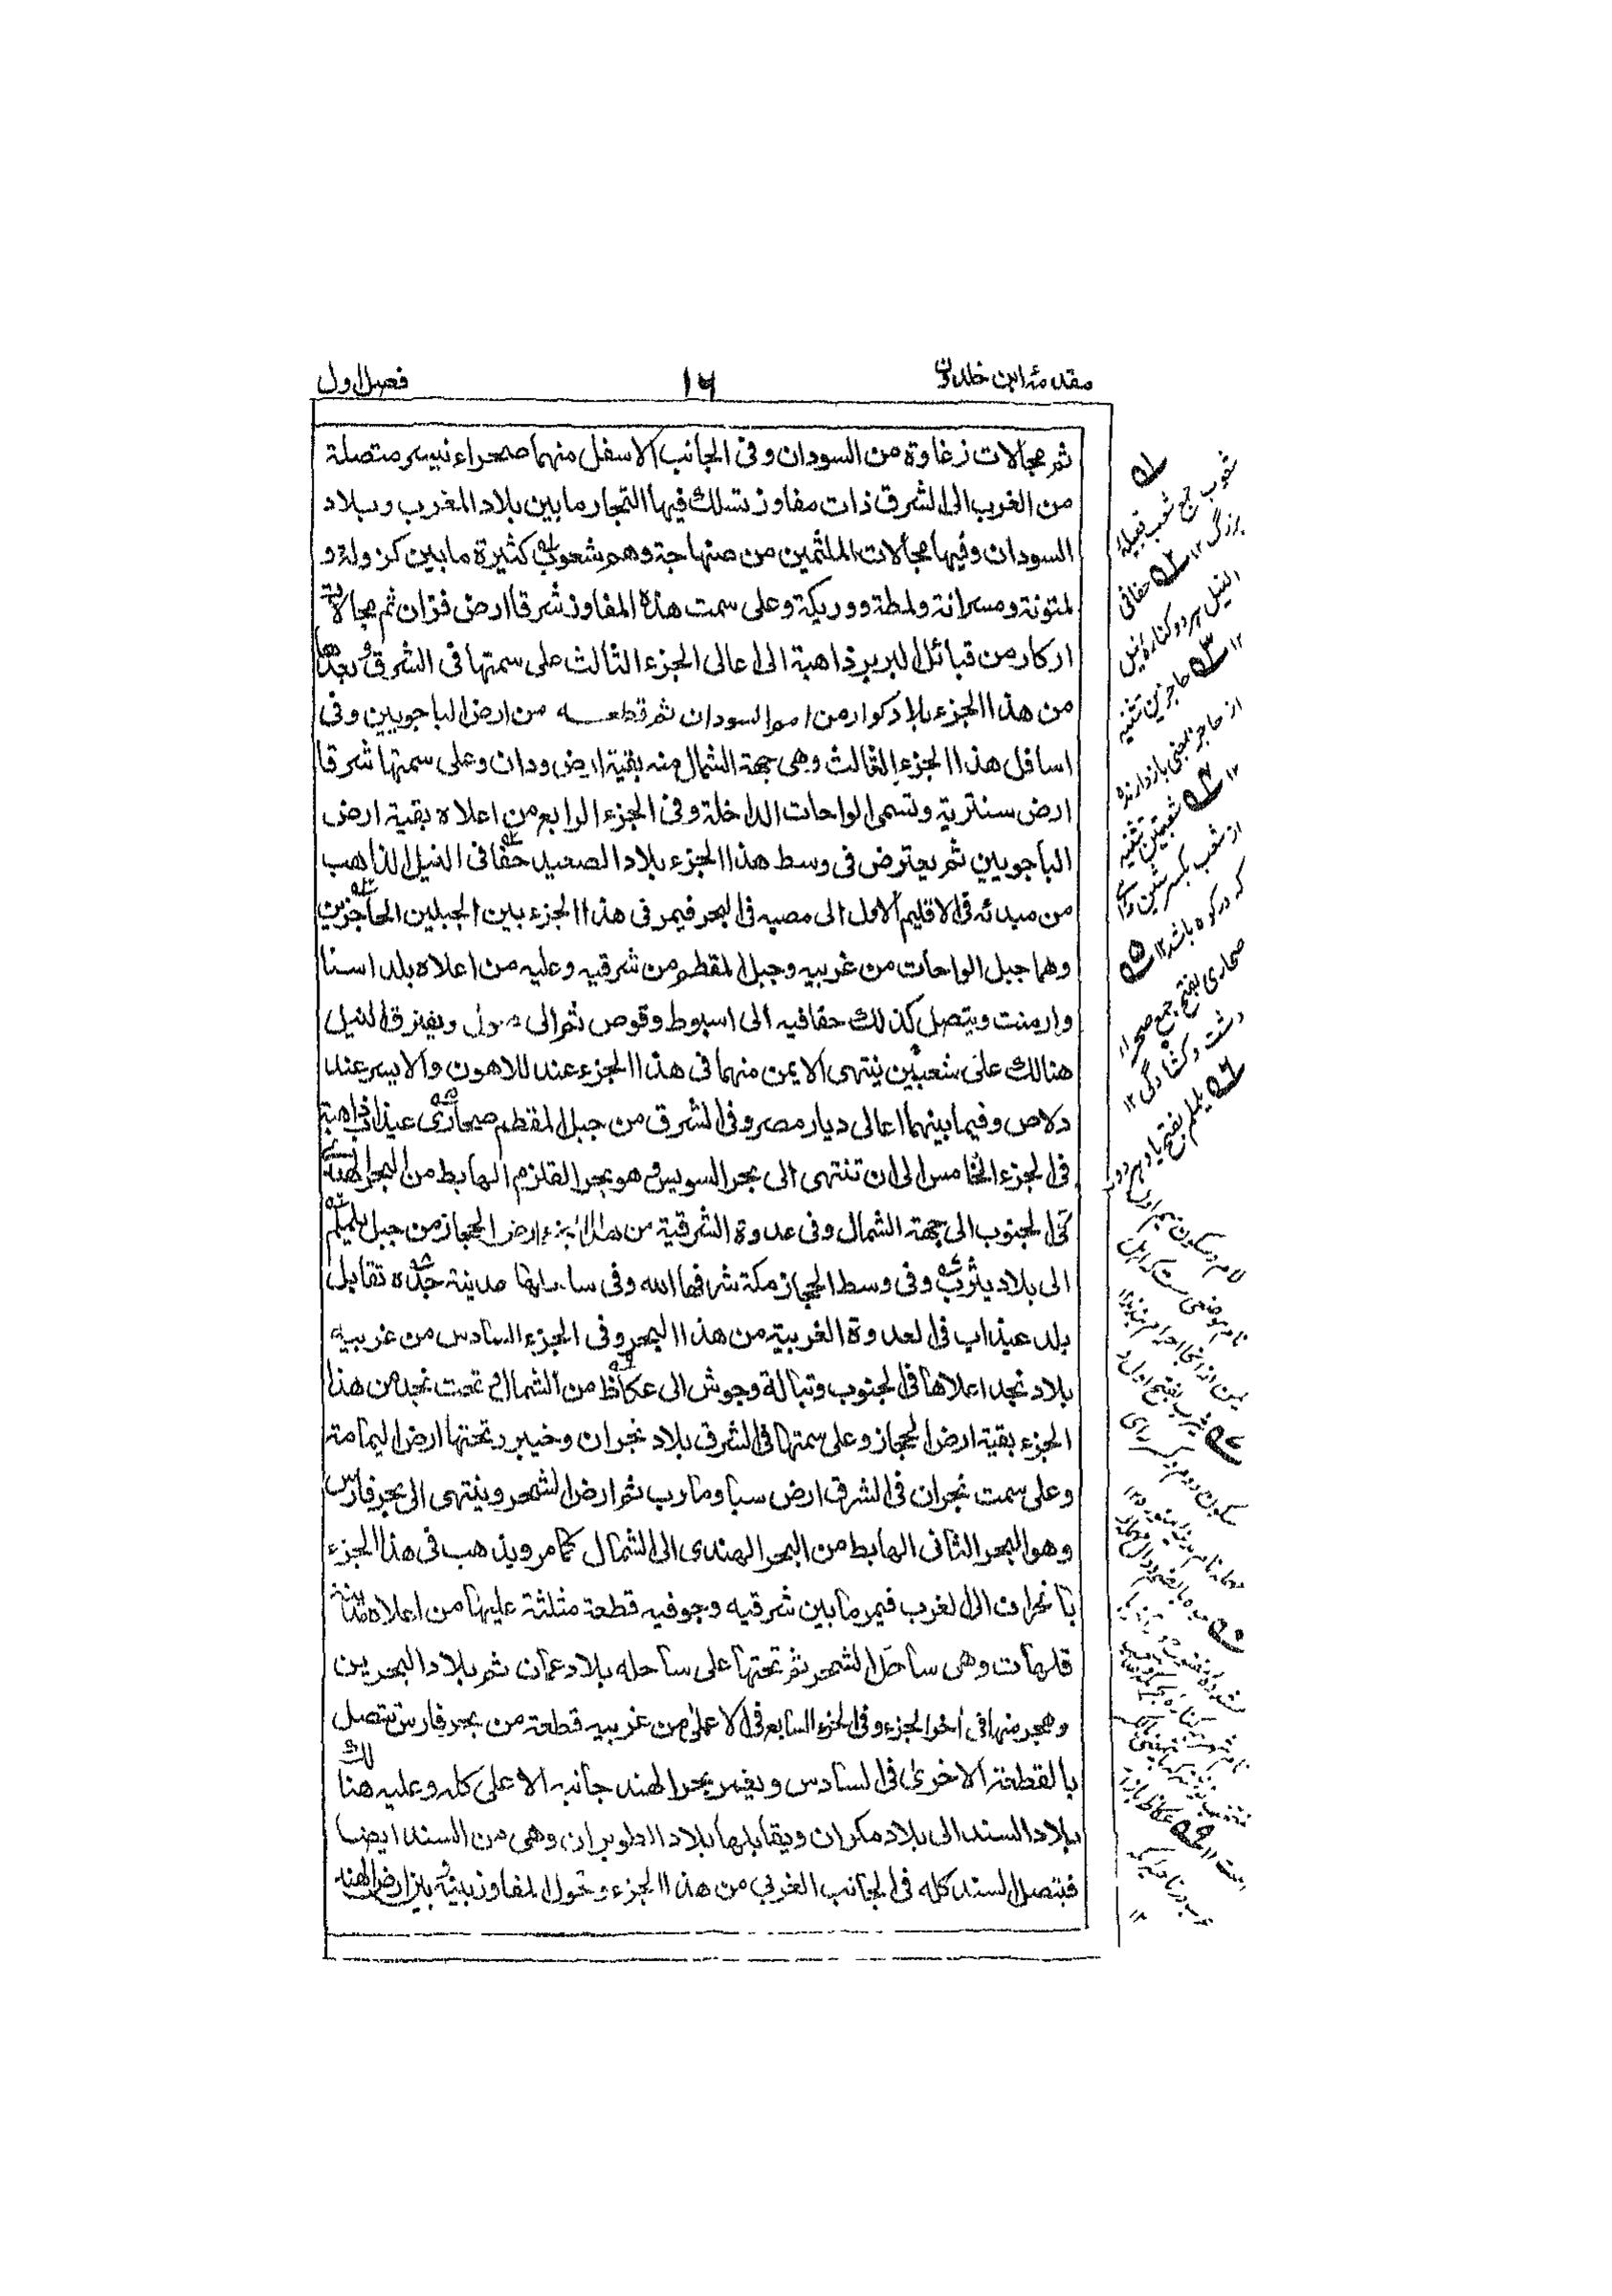 مقدمۂ ابن خلدون
۱۶
فصل اول
ثم مجالات زغاوة من السودان وفى الجانب الاسفل منهما صحراء نيسر متصلة
من الغرب الى الشرق ذات مفاوز تسلك فيها التجار ما بين بلاد المغرب وبلاد
السودان وفيها مجالات الملثمين من صنهاجة وهم شعوب كثيرة ما بين كزولة و
لمتونة ومسرانة ولمطة ووريكة وعلى سمت هذه المفاوز شرقا ارض فزان ثم مجالات
اركار من قبائل البربر ذاهبة الى اعالى الجزء الثالث على سمتها فى الشرق وبعدها
من هذا الجزء بلاد كوار من امم السودان ثم قطعه من ارض الباجويين وفى
اسافل هذا الجزء الثالث وهى جهة الشمال منه بقية ارض ودان وعلى سمتها شرقا
ارض سنترية وتسمى الواحات الداخلة وفى الجزء الرابع من اعلاه بقية ارض
الباجويين ثم يعترض فى وسط هذا الجزء بلاد الصعيد حفافى النيل الذاهب
من مبدئه فى الاقليم الاول الى مصبه فى البحر فيمر فى هذا الجزء بين الجبلين الحاجزين
وهما جبل الواحات من غربيه وجبل المقطم من شرقيه وعليه من اعلاه بلد اسنا
وارمنت ويتصل كذلك حفافيه الى اسيوط وقوص ثم الى صول ويفترق النيل
هنالك على شعبين ينتهى الايمن منهما فى هذا الجزء عند اللاهون والايسر عند
دلاص وفيما بينهما اعالى ديار مصر وفى الشرق من جبل المقطم صحارى عيذاب ذاهبة
فى الجزء الخامس الى ان تنتهى الى بحر السويس وهو بحر القلزم الهابط من البحر الهندى
فى الجنوب الى جهة الشمال وفى عدوة الشرقية من هذا الجزء ارض الحجاز من جبل يلملم
الى بلاد يثرب وفى وسط الحجاز مكة شرفها الله وفى ساحلها مدينة جده تقابل
بلد عيذاب فى العدوة الغربية من هذا البحر وفى الجزء السادس من غربيه
بلاد نجد اعلاها فى الجنوب وتبالة وجوش الى عكاظ من الشمال تحت نجد من هذا
الجزء بقية ارض الحجاز وعلى سمتها فى الشرق بلاد نجران وخيبر وتحتها ارض اليمامة
وعلى سمت نجران فى الشرق ارض سبا ومارب ثم ارض الشحر وينتهى الى بحر فارس
وهو البحر الثانى الهابط من البحر الهندى الى الشمال كما مر ويذهب فى هذا الجزء
بانحراف الى الغرب فيمر ما بين شرقيه وجوفيه قطعة مثلثة عليها من اعلاه مدينة
قلهات وهى ساحل الشحر ثم تحتها على ساحله بلاد عمان ثم بلاد البحرين
وهجر منها فى اخر الجزء وفى الجزء السابع فى الاعلى من غربيه قطعة من بحر فارس تتصل
بالقطعة الاخرى فى السادس ويغمر بحر الهند جانبه الاعلى كله وعليه هنالك
بلاد السند الى بلاد مكران ويقابلها بلاد الطوبران وهى من السند ايضا
فيتصل السند كله فى الجانب الغربى من هذا الجزء وتحول المفاوز بينه وبين ارض الهند
شعوب جمع شعب قبیلہ
بزرگ ۱۲ حفافی
النیل ہر دو کنارہ نیل
۱۲ حاجزین تثنیہ
از حاجز بمعنی باز دارندہ
۱۲ شعبتین تثنیہ
از شعب بکسر شین راہ
کہ در کوہ باشد ۱۲
صحاری بفتح جمع صحراء
دشت و کشادگی ۱۲
یلملم بفتح یا و ہر دو
لام و سکون میم اول